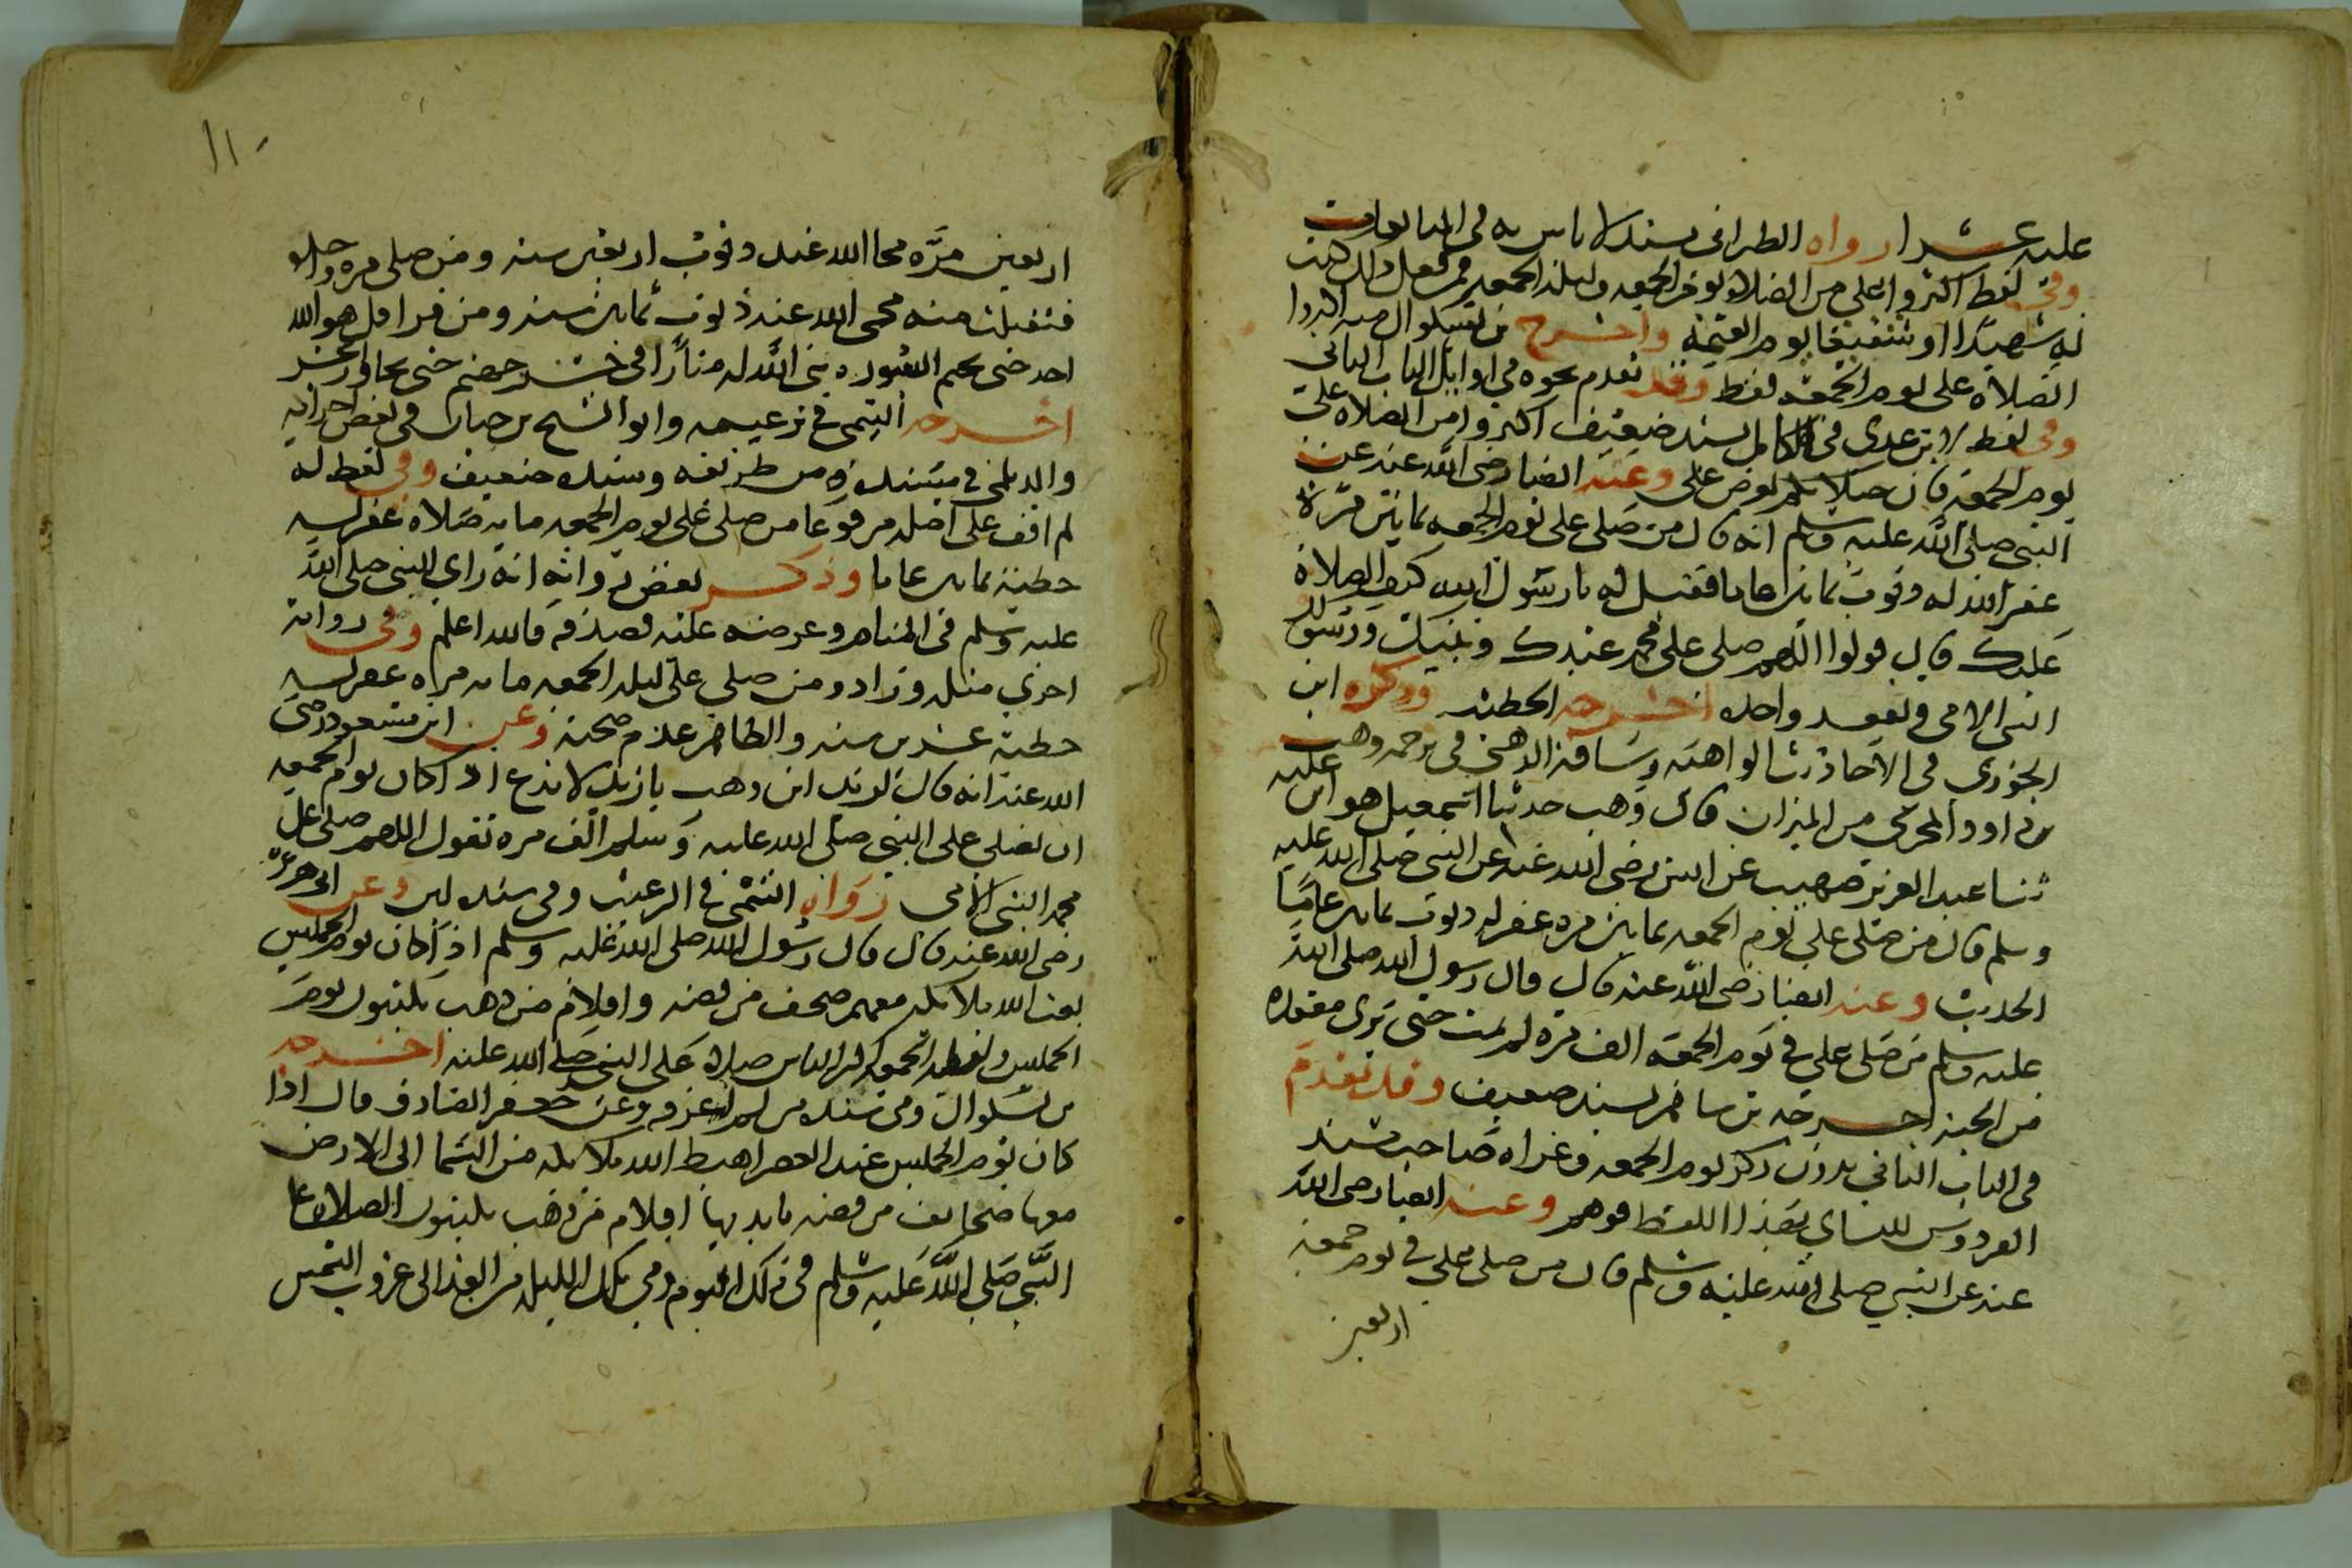 عليه عشرا رواه الطبراني بسند لا باس به في المتابعات
وفي لفظ اكثروا علي من الصلاة يوم الجمعه وليله الجمعه فمن فعل ذلك كنت
له شهيدا او شفيعا يوم القيمه واخرج بن بشكوال منه اكثروا
الصلاة على يوم الجمعه فقط وقد تقدم نحوه في اوايل الباب الثاني
وفي لفظ لابن عدي في الكامل بسند ضعيف اكثروا من الصلاة على
يوم الجمعه فان صلاتكم تعرض على وعنه ايضا رضى الله عنه عن
النبي صلى الله عليه وسلم انه قال من صلى على يوم الجمعه ثمانين مرة
غفر الله له ذنوب ثمانين عاما فقيل له يا رسول الله كيف الصلاة
عليك قال قولوا اللهم صلى على محمد عبدك ونبيك ورسولك
النبي الامى وتعقد واحده اخرجه الخطيب وذكره ابن
الجوزى في الاحاديث الواهيه وساقه الذهبي في ترجمه وهب
بن داود المخرمى من الميزان قال وهب حدثنا اسمعيل هو ابن عليه
ثنا عبد العزيز صهيب عن انس رضى الله عنه عن النبي صلى الله عليه
وسلم قال من صلى علي يوم الجمعه ثمانين مره غفر له ذنوب ثمانين عاما
الحديث وعنه ايضا رضى الله عنه قال قال رسول الله صلى الله
عليه وسلم من صلى علي في يوم الجمعه الف مره لم يمت حتى يرى مقعده
من الجنه اخرجه بن شاهين بسند ضعيف وقد تقدم
في الباب الثاني بدون ذكر يوم الجمعه وعزاه صاحب مسند
الفردوس للنساي بهذا اللفظ فوهم وعنه ايضا رضى الله
عنه عن النبي صلى الله عليه وسلم قال من صلى علي في يوم جمعه
اربعين
١١٠
اربعين مره محا الله عنه ذنوب اربعين سنه ومن صلى مره واحده
فتقبلت منه محى الله عنه ذنوب ثمانين سنه ومن قرا قل هو الله
احد حتى يختم السوره بنى الله له منارا في جسر جهنم حتى يجاوز الجسر
اخرجه التيمى في ترغيبه وابو الشيخ بن حيان في بعض اجزايه
والديلمي في مسنده من طريقه وسنده ضعيف وفي لفظ له
لم اقف على اصله مرفوعا من صلى على يوم الجمعه مايه صلاه غفر له
خطيئة ثمانين عاما وذكر بعض رواته انه راى النبي صلى الله
عليه وسلم في المنام وعرضه عليه فصدقه فالله اعلم وفي روايه
اخرى مثله وزاد ومن صلى على ليله الجمعه مايه مره غفر له
خطيئة عشرين سنه والظاهر عدم صحته وعن ابن مسعود رضى
الله عنه انه قال لزيد ابن وهب يا زيد لا تدع اذا كان يوم الجمعه
ان تصلى على النبي صلى الله عليه وسلم الف مره تقول اللهم صلى على
محمد النبي الامى رواه التيمى في الترغيب وفي سنده لين وعن ابى هريرة
رضى الله عنه قال قال رسول الله صلى الله عليه وسلم اذا كان يوم الخميس
بعث الله ملايكه معهم صحف من فضه واقلام من ذهب يكتبون يوم
الخميس وليله الجمعه اكثر الناس صلاة على النبي صلى الله عليه اخرجه
بن بشكوال وفي سنده من لم اعرفه وعن جعفر الصادق قال اذا
كان يوم الخميس عند العصر اهبط الله ملايكه من السما الى الارض
معها صحايف من فضه بايديها اقلام من ذهب يكتبون الصلاه على
النبي صلى الله عليه وسلم في ذلك اليوم وفي تلك الليله من الغد الى غروب الشمس